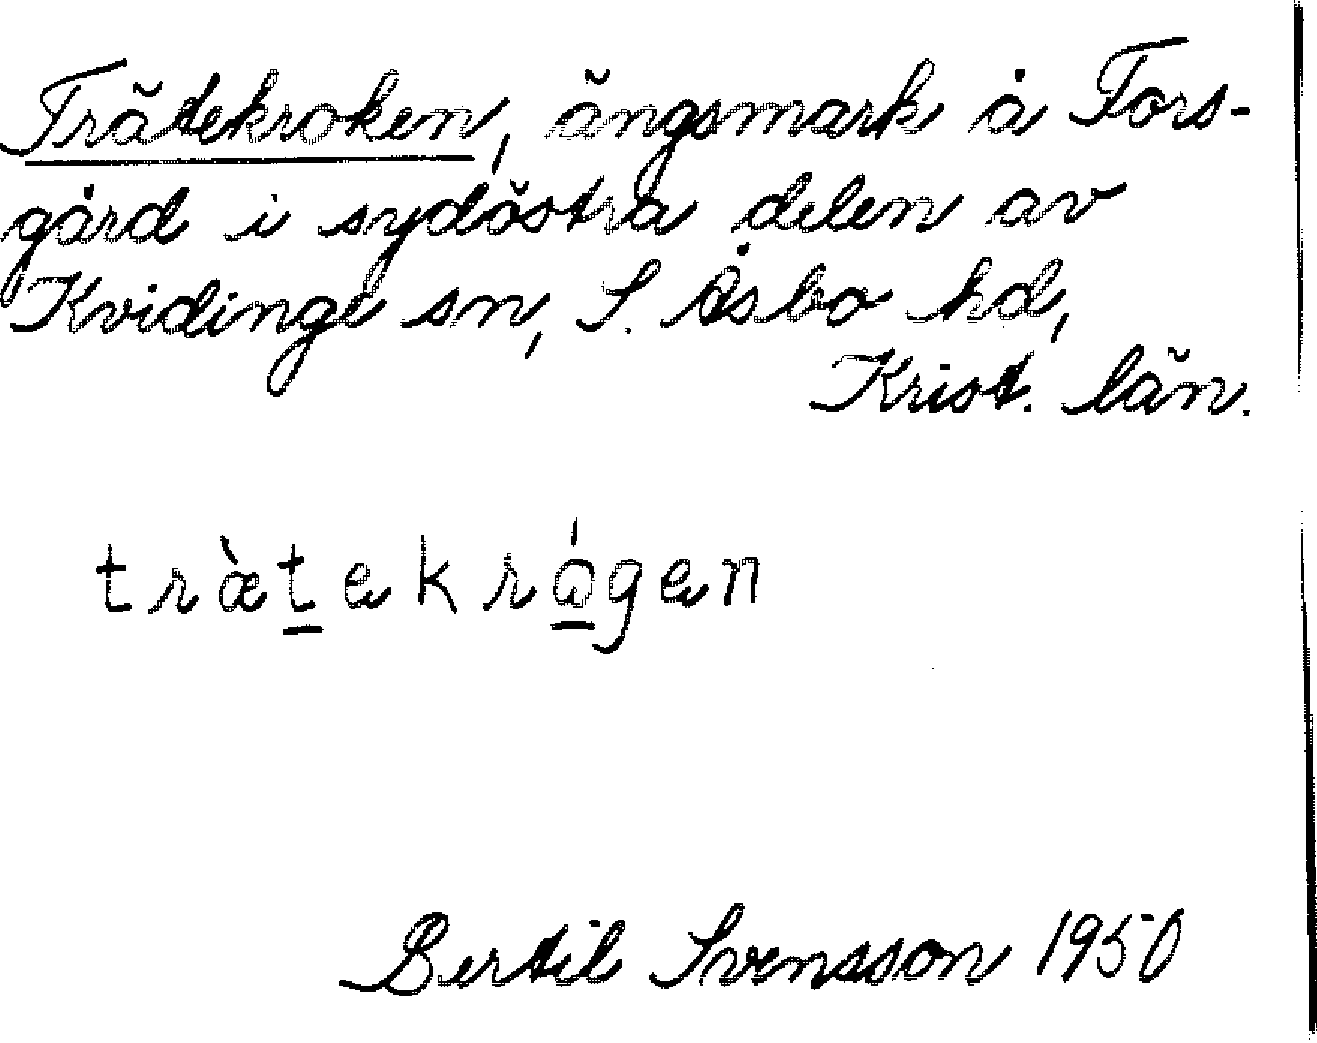 Trätekroken, ängsmark å Fors-
gård i sydöstra delen av
Kvidinge sn, S. Åsbo hd,
Krist. län.
træ̀t̲ekró̲gen
Bertil Svensson 1950